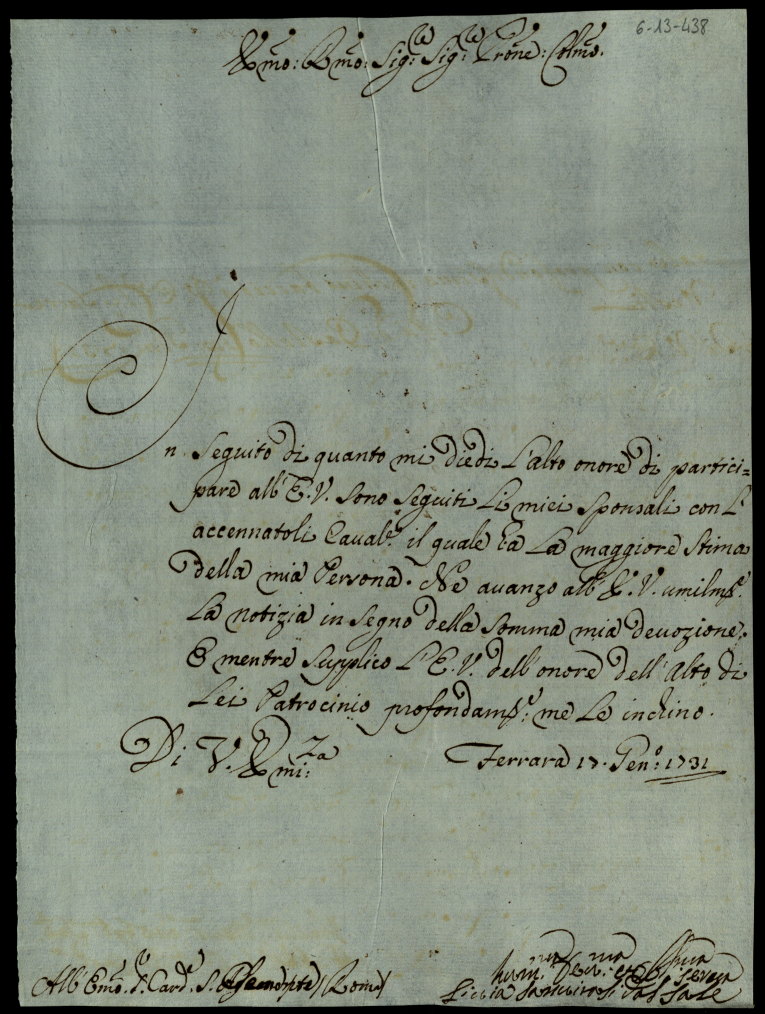 6-13-438
Emo: Rmo: Sig:r Sig:r Prone: Colmo:
In Seguito di quanto mi diedi L'alto onore di partici=
pare all'E.V. sono seguiti Li miei sponsali con L'
accennatoli Caval:re il quale ha La maggiore stima
della mia Persona. Ne avanzo all'E.V. umilm:te
La notizia in segno della somma mia devozione.
E mentre supplico L'E.V. dell'onore dell'Alto di
Lei Patrocinio profondam:te me Le inchino.
Di V. Emi:za Ferrara 17. Gen:o 1731
All'Emo. S. Card:e S. (Roma)
Hum:ma Dev:ma Serva